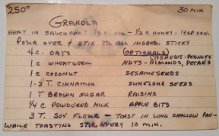 "250" 30 MIN.
GRANOLA
HEAT IN SAUCEPAN: 1/2 C OIL - 1/2 C HONEY - 1 TSP VAN.
POUR OVER & STIR TIL ALL INGRED. STICKY
4 C. OATS (OPTIONALS)
1 C WHEATGERM NUTS - ALMONDS, PECANS
CASHEWS - PEANUTS
1 C COCONUT SESAME SEEDS
1-2 T. CINNAMON SUNFLOWER SEEDS
1 T BROWN SUGAR RAISINS
1/4 C POWDERED MILK APPLE BITS
3 T. SOY FLOUR - TOAST IN LONG SHALLOW PAN
WHILE TOASTING STIR EVERY 10 MIN.